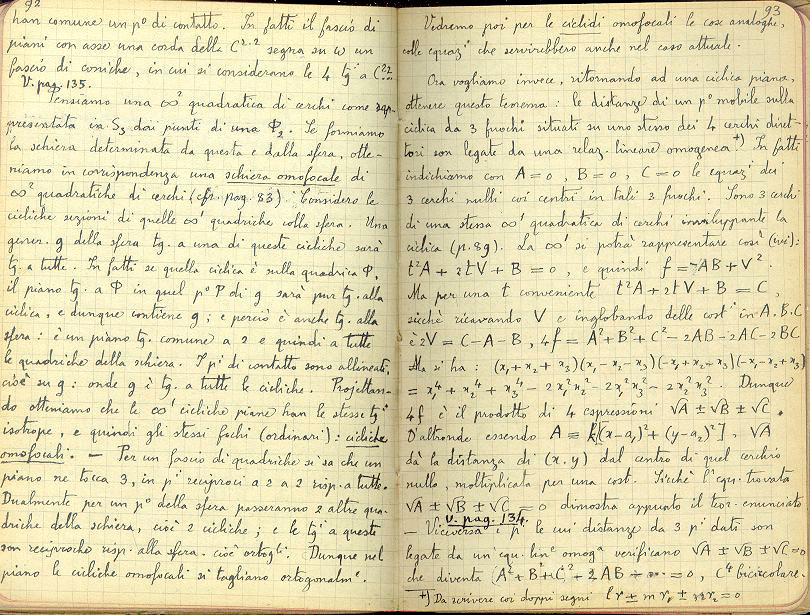 92
han comune un p° di contatto. In fatti il fascio di
piani con asse una corda della C²·² segna su ω un
fascio di coniche, in cui si considerano le 4 tgⁱ a C²·².
V. pag. 135.
Pensiamo una ∞¹ quadratica di cerchi come rap-
presentata in S₃ dai punti di una Φ₂. Se formiamo
la schiera determinata da questa e dalla sfera, otte-
niamo in corrispondenza una schiera omofocale di
∞¹ quadratiche di cerchi (cfr. pag. 83). Considero le
cicliche sezioni di quelle ∞¹ quadriche colla sfera. Una
gener. g della sfera tg. a una di queste cicliche sarà
tg. a tutte. In fatti se quella ciclica è sulla quadrica Φ,
il piano tg. a Φ in quel p° P di g sarà pur tg. alla
ciclica, e dunque contiene g; e perciò è anche tg. alla
sfera: è un piano tg. comune a 2 e quindi a tutte
le quadriche della schiera. I pⁱ di contatto sono allineati,
cioè su g: onde g è tg. a tutte le cicliche. Projettan-
do otteniamo che le ∞¹ cicliche piane han le stesse tgⁱ
isotrope, e quindi gli stessi fochi (ordinari): cicliche
omofocali. — Per un fascio di quadriche si sa che un
piano ne tocca 3, in pⁱ reciproci a 2 a 2 risp. a tutte.
Dualmente per un p° della sfera passeranno 2 altre qua-
driche della schiera, cioè 2 cicliche; e le tgⁱ a queste
son reciproche risp. alla sfera, cioè ortogⁱ. Dunque nel
piano le cicliche omofocali si tagliano ortogonalmᵉ.
93
Vedremo poi per le ciclidi omofocali le cose analoghe,
colle equazⁱ che servirebbero anche nel caso attuale.
Ora vogliamo invece, ritornando ad una ciclica piana,
ottenere questo teorema: le distanze di un p° mobile sulla
ciclica da 3 fuochi situati su uno stesso dei 4 cerchi diret-
tori son legate da una relaz. lineare omogenea⁺⁾. In fatti
indichiamo con A=0, B=0, C=0 le equazⁱ dei
3 cerchi nulli coi centri in tali 3 fuochi. Sono 3 cerchi
di una stessa ∞¹ quadratica di cerchi inviluppante la
ciclica (p. 89). La ∞¹ si potrà rappresentare così (ivi):
t²A + 2tV + B = 0, e quindi f = -AB + V².
Ma per una t conveniente t²A + 2tV + B = C,
sicchè ricavando V e inglobando delle costⁱ in A.B.C
è 2V = C-A-B, 4f = A²+B²+C²-2AB-2AC-2BC
Ma si ha: (x₁+x₂+x₃)(x₁-x₂-x₃)(-x₁+x₂-x₃)(-x₁-x₂+x₃)
= x₁⁴+x₂⁴+x₃⁴-2x₁²x₂²-2x₁²x₃²-2x₂²x₃². Dunque
4f è il prodotto di 4 espressioni √A ± √B ± √C.
D'altronde essendo A ≡ k[(x-a₁)²+(y-a₂)²], √A
dà la distanza di (x, y) dal centro di quel cerchio
nullo, moltiplicata per una cost. Sicchè l'equ. trovata
√A ± √B ± √C = 0 dimostra appunto il teor. enunciato
V. pag. 134.
— Viceversa i pⁱ le cui distanze da 3 pⁱ dati son
legate da un'equ. linᵉ omogᵃ verificano √A ± √B ± √C = 0
che diventa A²+B²+C²-2AB - ... = 0, C⁴ bicircolare.
⁺⁾ Da scrivere coi doppi segni l r ± m r₁ ± n r₂ = 0